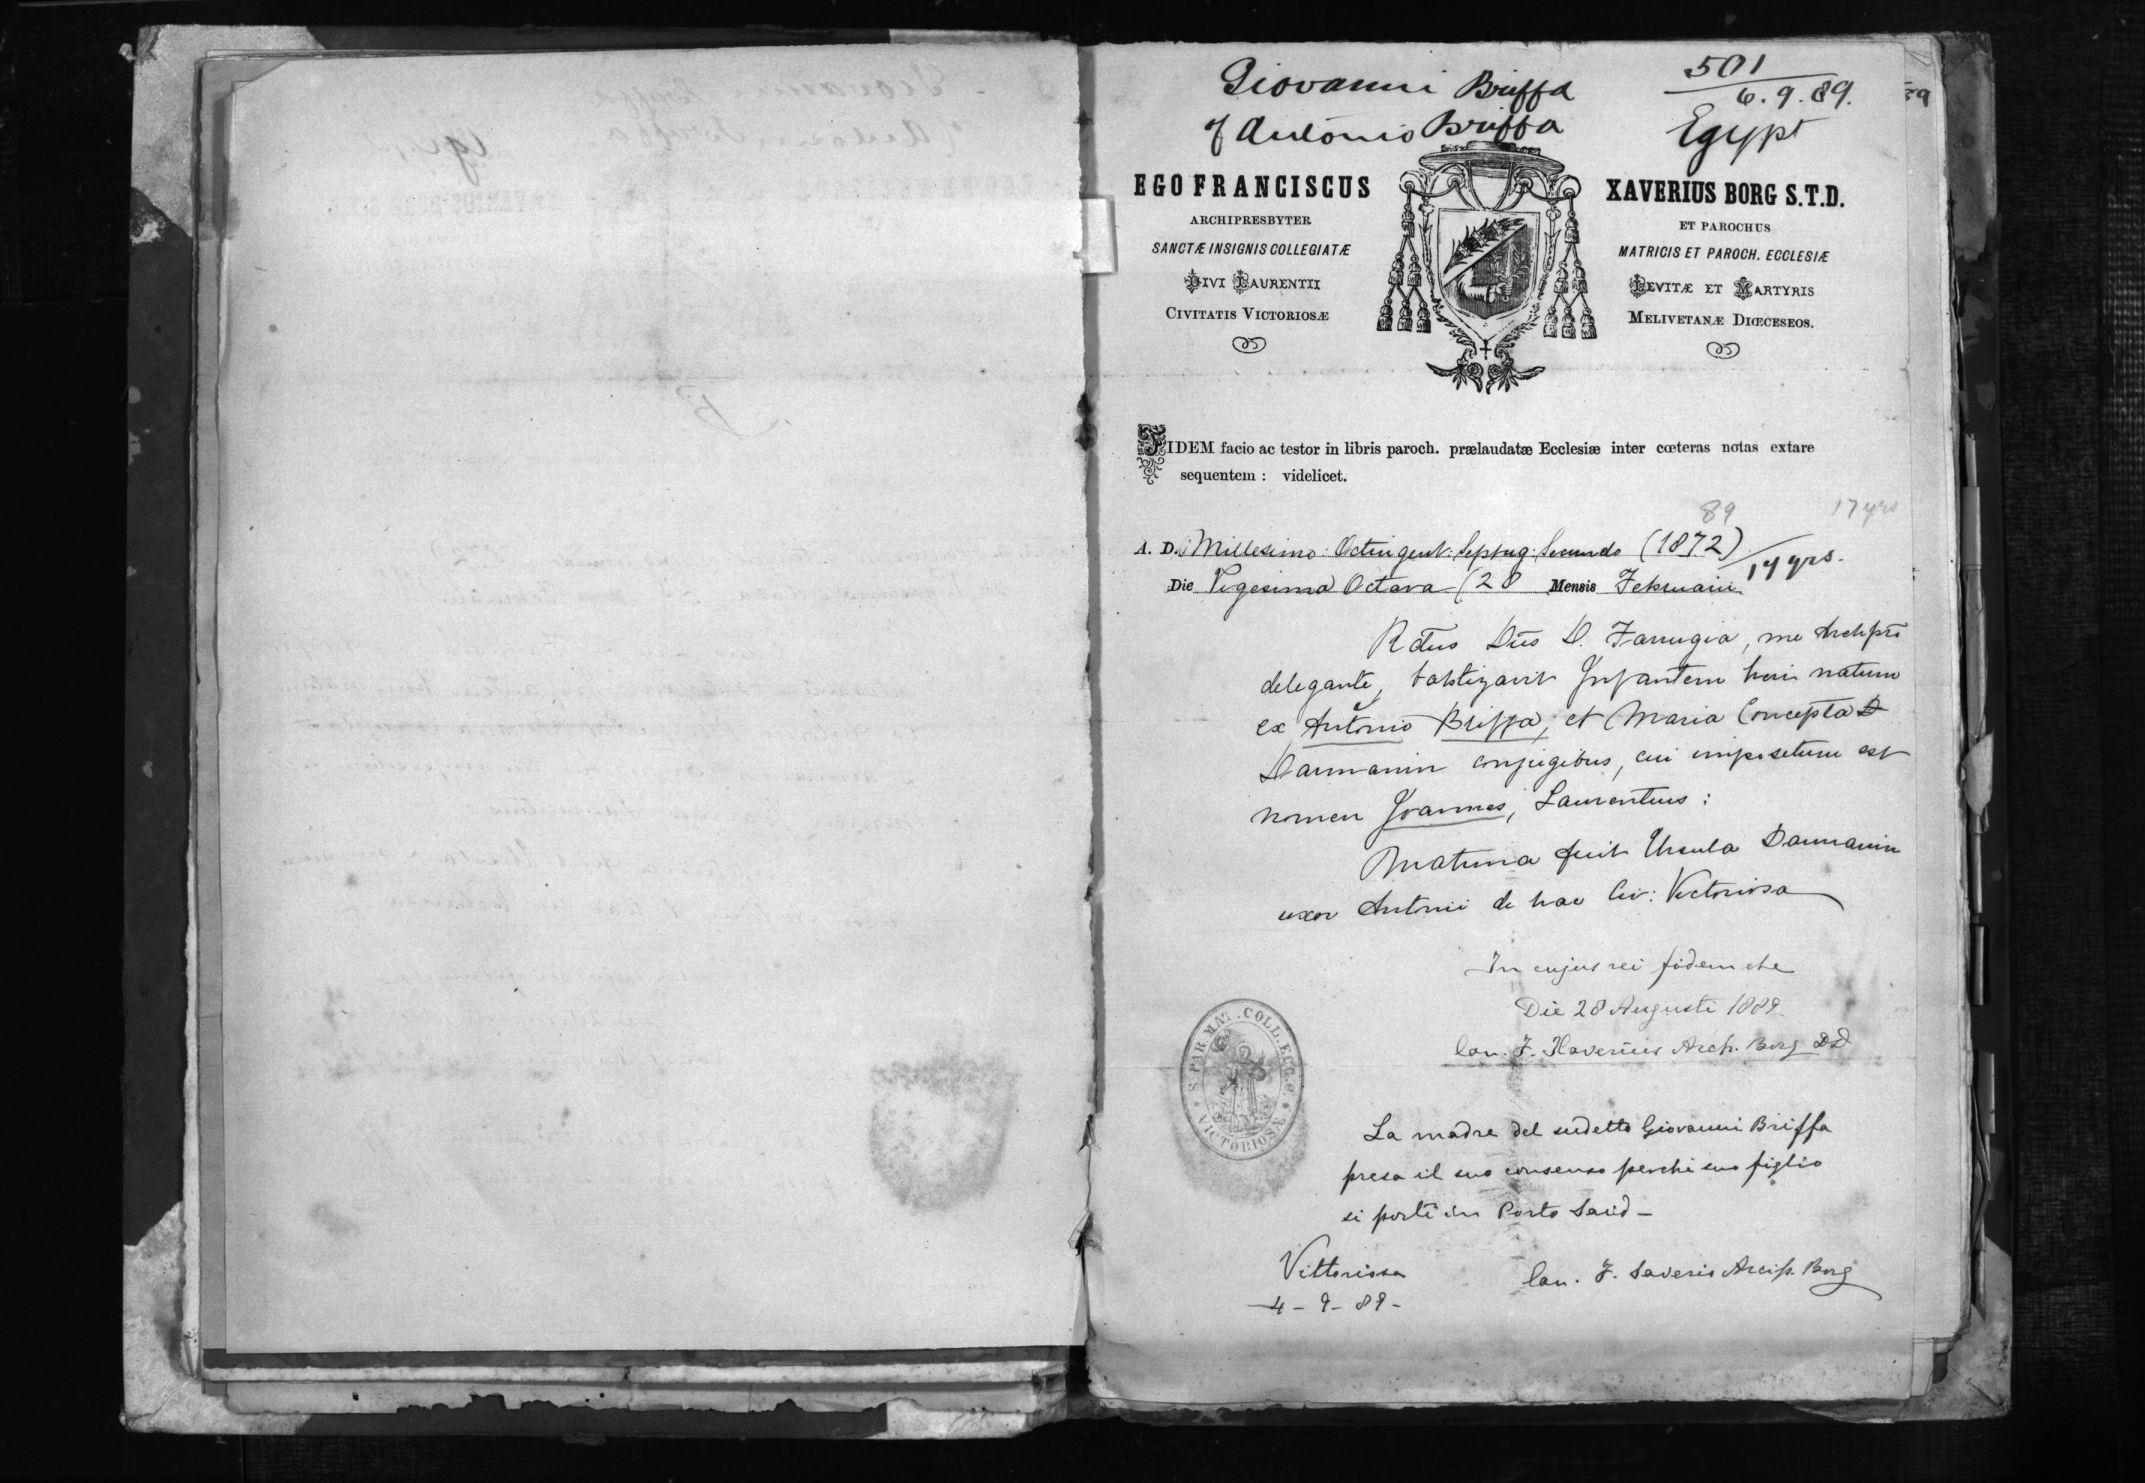 Giovanni Briffa
of Antonio Briffa
501
6.9.89.
Egypt
EGO FRANCISCUS
ARCHIPRESBYTER
SANCTÆ INSIGNIS COLLEGIATÆ
DIVI LAURENTII
CIVITATIS VICTORIOSÆ
XAVERIUS BORG S.T.D.
ET PAROCHUS
MATRICIS ET PAROCH. ECCLESIÆ
LEVITÆ ET MARTYRIS
MELIVETANÆ DIŒCESEOS.
FIDEM facio ac testor in libris paroch. prælaudatæ Ecclesiæ inter cœteras notas extare
sequentem : videlicet.
89
17 yrs
A. D. Millesimo: Octingent: Septug: Secundo (1872)
17 yrs.
Die Vigesima Octava (28 Mensis Februarii
Rdus Dus D. Farrugia, me Archpro
delegante, baptizavit Infantem heri natum
ex Antonio Briffa, et Maria Concepta D
Darmanin conjugibus, cui impositum est
nomen Joannes, Laurentius:
Matrina fuit Ursula Darmanin
uxor Antonii de hac Civ: Victoriosa
In cujus rei fidem etc
Die 28 Augusti 1889
Can. F. Xaverius Arch. Borg DD
S. PAR. MAT. COLL. ECC. C. VICTORIOSÆ
La madre del sudetto Giovanni Briffa
presa il suo consenso perchè suo figlio
si porti in Porto Said -
Vittoriosa
4 - 9 - 89 -
Can. F. Saverio Arcip. Borg